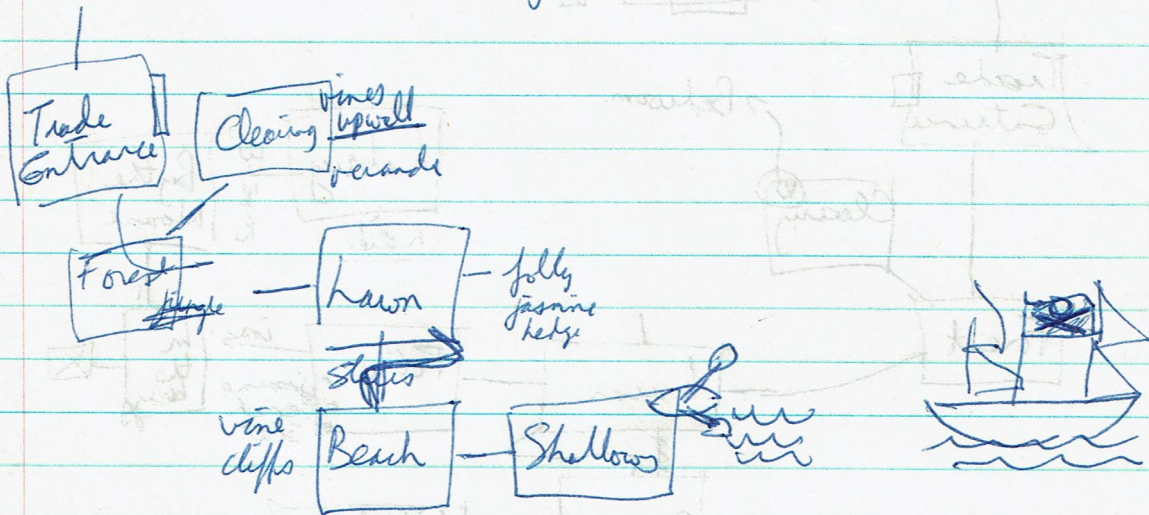 Trade
Entrance
Clearing
vines
up wall
veranda
Forest
jungle
Lawn
folly
jasmine
hedge
steps
vine
cliffs
Beach
Shallows